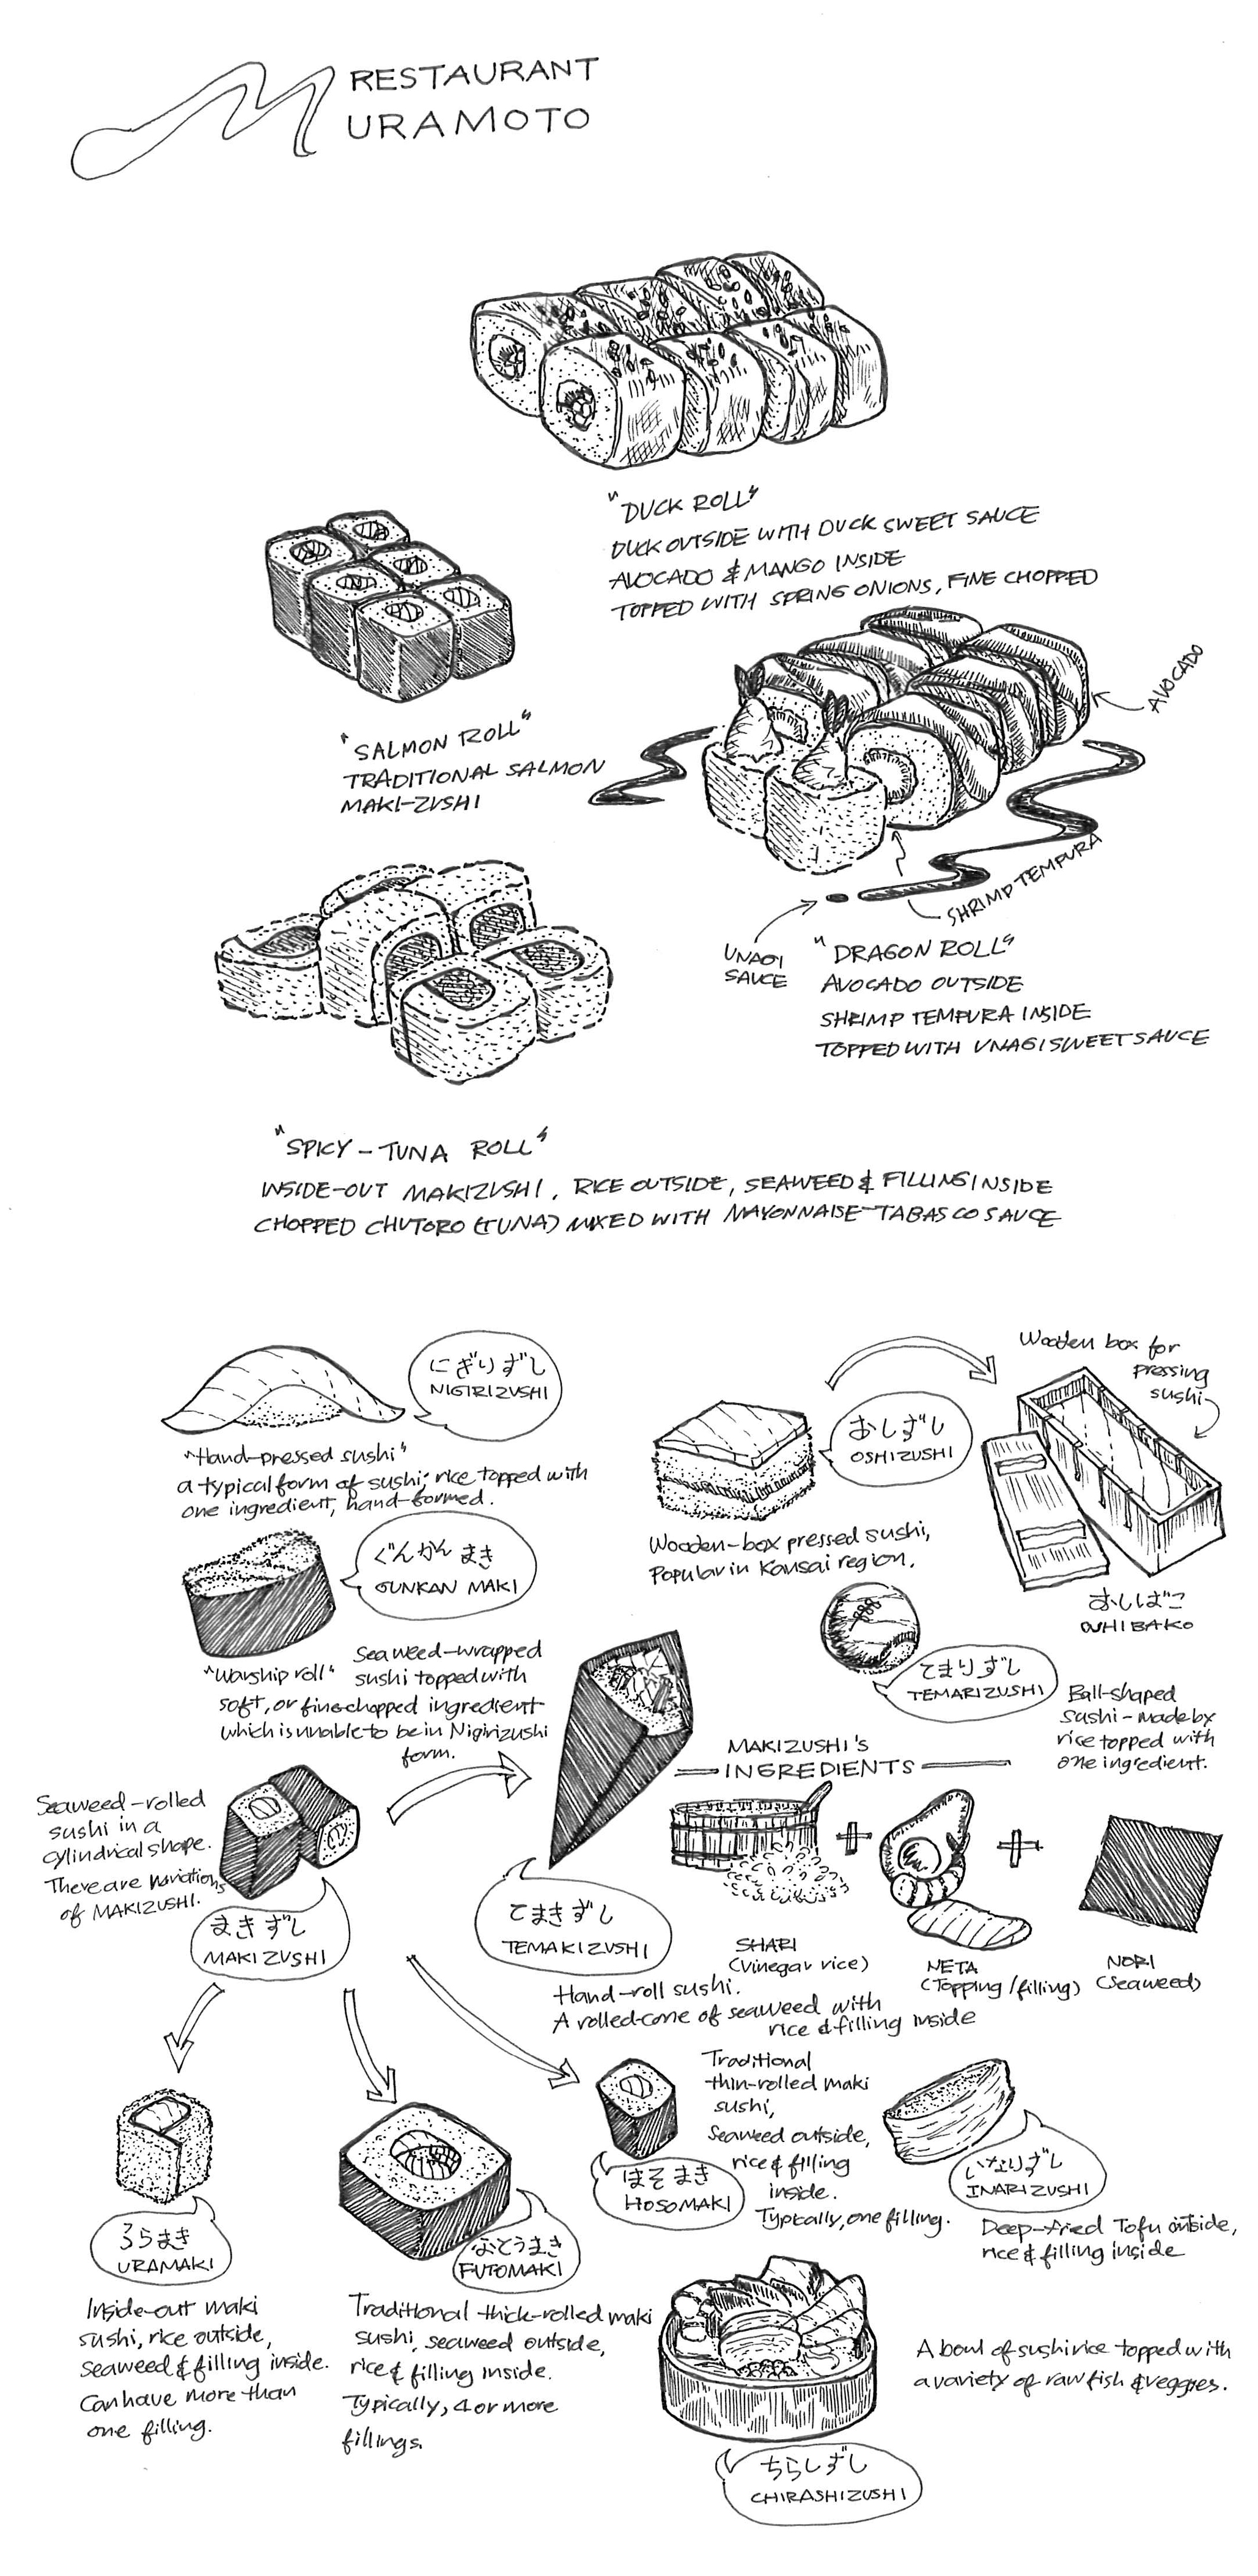 RESTAURANT
URAMOTO
"DUCK ROLL"
DUCK OUTSIDE WITH DUCK SWEET SAUCE
AVOCADO & MANGO INSIDE
TOPPED WITH SPRING ONIONS, FINE CHOPPED
"SALMON ROLL"
TRADITIONAL SALMON
MAKI-ZUSHI
AVOCADO
SHRIMP TEMPURA
UNAGI
SAUCE
"DRAGON ROLL"
AVOCADO OUTSIDE
SHRIMP TEMPURA INSIDE
TOPPED WITH UNAGI SWEET SAUCE
"SPICY-TUNA ROLL"
INSIDE-OUT MAKIZUSHI, RICE OUTSIDE, SEAWEED & FILLING INSIDE
CHOPPED CHUTORO (TUNA) MIXED WITH MAYONNAISE-TABASCO SAUCE
にぎりずし
NIGIRIZUSHI
"Hand-pressed sushi"
a typical form of sushi; rice topped with
one ingredient, hand-formed.
おしずし
OSHIZUSHI
Wooden-box pressed sushi,
Popular in Kansai region.
Wooden box for
pressing
sushi
おしばこ
OSHIBAKO
ぐんかんまき
GUNKAN MAKI
"Warship roll"
Seaweed-wrapped
sushi topped with
soft, or fine-chopped ingredient
which is unable to be in Nigirizushi
form.
てまりずし
TEMARIZUSHI
Ball-shaped
sushi - made by
rice topped with
one ingredient.
Seaweed-rolled
sushi in a
cylindrical shape.
There are variations
of MAKIZUSHI.
まきずし
MAKIZUSHI
てまきずし
TEMAKIZUSHI
Hand-roll sushi.
A rolled-cone of seaweed with
rice & filling inside
MAKIZUSHI'S
INGREDIENTS
+
+
SHARI
(Vinegar rice)
NETA
(Topping/filling)
NORI
(Seaweed)
うらまき
URAMAKI
Inside-out maki
sushi, rice outside,
seaweed & filling inside.
Can have more than
one filling.
ふとうまき
FUTOMAKI
Traditional thick-rolled maki
sushi, seaweed outside,
rice & filling inside.
Typically, 4 or more
fillings.
ほそまき
HOSOMAKI
Traditional
thin-rolled maki
sushi,
Seaweed outside,
rice & filling
inside.
Typically, one filling.
いなりずし
INARIZUSHI
Deep-fried Tofu outside,
rice & filling inside
ちらしずし
CHIRASHIZUSHI
A bowl of sushi rice topped with
a variety of raw fish & veggies.